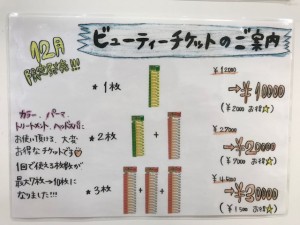 12月
限定販売!!!
ビューティーチケットのご案内
* 1枚
¥12000
→¥10000
(¥2000 お得☆)
カラー、パーマ、
トリートメント、ヘッドスパに
お使い頂ける、大変
お得なチケットです
1回で使える枚数が
最大7枚→10枚に
なりました!!!
* 2枚
+
→¥20000
お得☆)
* 3枚
+ +
→¥30000
お得☆)